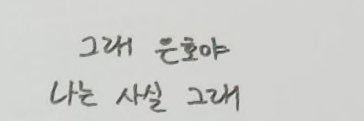 그래 은호야
나는 사실 그래